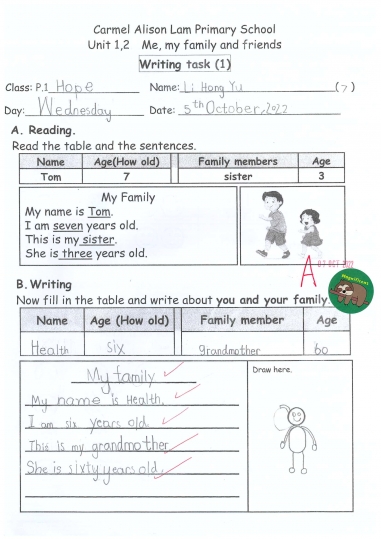 Carmel Alison Lam Primary School
Unit 1,2 Me, my family and friends
Writing task (1)
Class: P.1 Hope Name: Li Hong Yu (7)
Day: Wednesday Date: 5th October, 2022
A. Reading.
Read the table and the sentences.
Name Age(How old) Family members Age
Tom 7 sister 3
My Family
My name is Tom.
I am seven years old.
This is my sister.
She is three years old.
A
07 OCT 2022
Magnificent
B. Writing
Now fill in the table and write about you and your family.
Name Age (How old) Family member Age
Health six grandmother 60
My family
My name is Health.
I am six years old.
This is my grandmother
She is sixty years old.
Draw here.